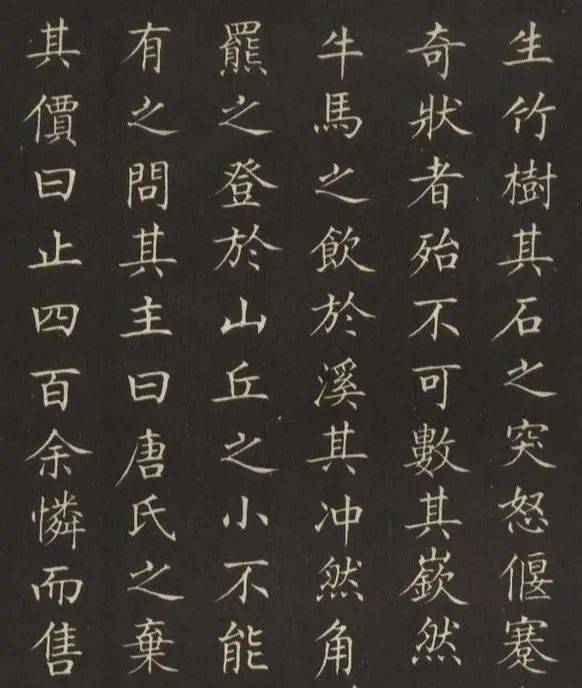 生竹樹其石之突怒偃蹇
奇狀者殆不可數其嶔然
牛馬之飲於溪其冲然角
羆之登於山丘之小不能
有之問其主曰唐氏之棄
其價曰止四百余憐而售